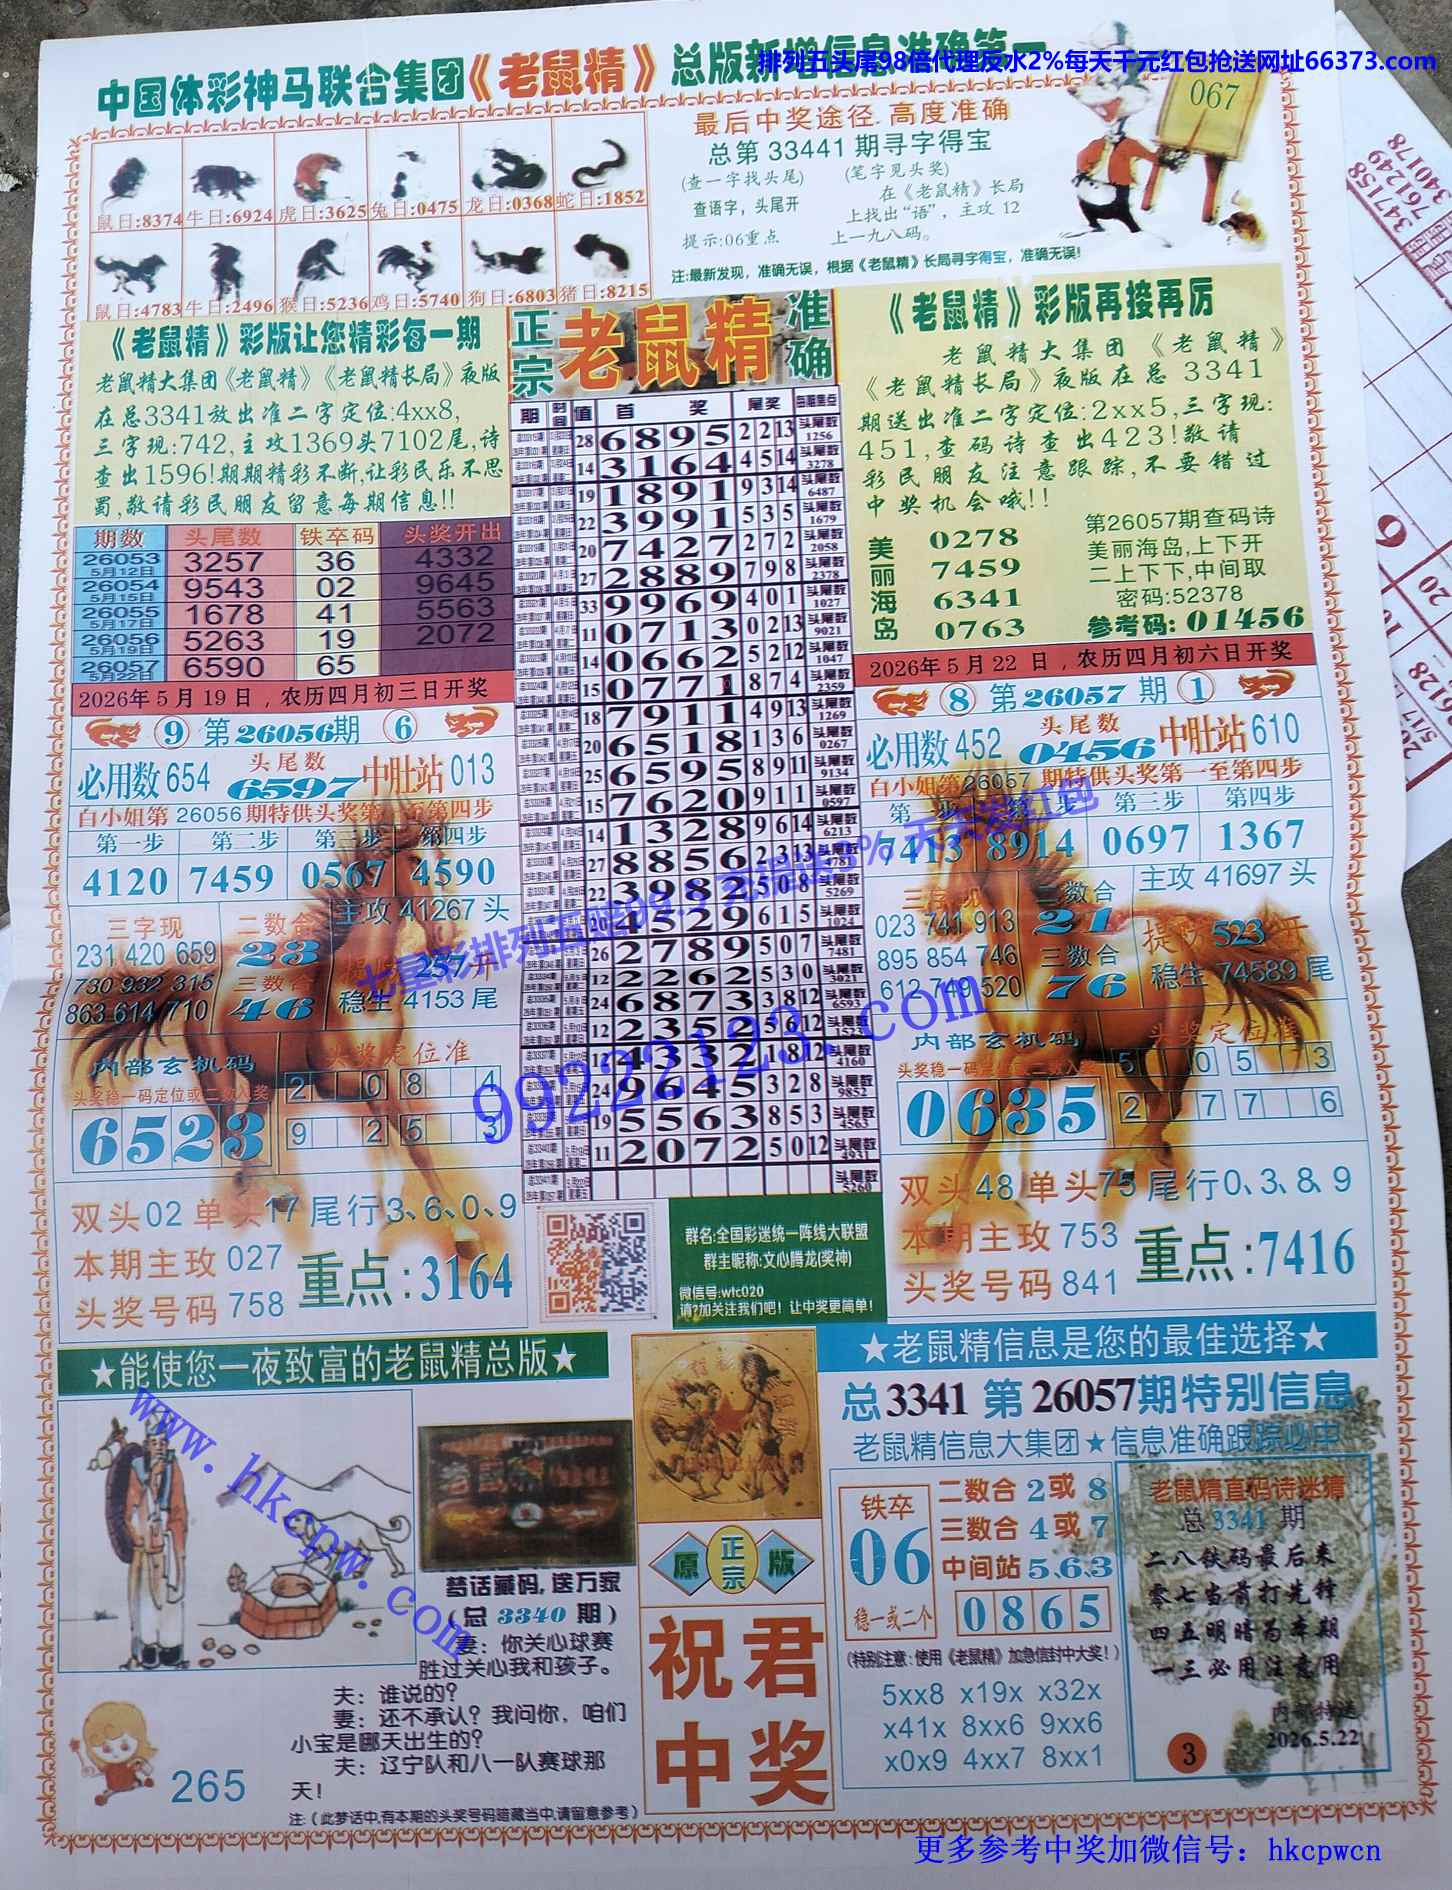 排列五头尾98倍代理反水2%每天千元红包抢送网址66373.com
中国体彩神马联合集团《老鼠精》总版新增信息准确第一
067
最后中奖途径.高度准确
总第33441期寻字得宝
(查一字找头尾) (笔字见头奖)
查语字，头尾开 在《老鼠精》长局
上找出“语”，主攻 12
提示:06重点 上一九八码。
注:最新发现，准确无误，根据《老鼠精》长局寻字得宝，准确无误!
鼠日:8374 牛日:6924 虎日:3625 兔日:0475 龙日:0368 蛇日:1852
鼠日:4783 牛日:2496 猴日:5236 鸡日:5740 狗日:6803 猪日:8215
《老鼠精》彩版让您精彩每一期
老鼠精大集团《老鼠精》《老鼠精长局》夜版
在总3341放出准二字定位:4xx8,
三字现:742,主攻1369头7102尾,诗
查出1596!期期精彩不断,让彩民乐不思
蜀,敬请彩民朋友留意每期信息!!
期数 头尾数 铁卒码 头奖开出
26053 5月12日 3257 36 4332
26054 5月15日 9543 02 9645
26055 5月17日 1678 41 5563
26056 5月19日 5263 19 2072
26057 5月22日 6590 65
2026年5月19日，农历四月初三日开奖
9 第26056期 6
必用数654 头尾数 6597 中肚站013
白小姐第26056期特供头奖第一至第四步
第一步 第二步 第三步 第四步
4120 7459 0567 4590
三字现 二数合 主攻 41267 头
231 420 659 23
730 932 315 三数合 提防 257 开
863 614 710 46 稳生 4153 尾
内部玄机码 头奖定位准
头奖稳一码定位或二数入奖 2 0 8 4
6523 9 2 5 3
双头02 单头17 尾行3、6、0、9
本期主攻 027
头奖号码 758 重点:3164
正宗 老鼠精 准确
期 时间 值 首奖 尾奖 每期重点
28 6895 2 2 13 头尾数 1256
14 3164 4 5 14 头尾数 3278
19 1891 9 3 14 头尾数 6487
22 3991 5 3 5 头尾数 1679
20 7427 2 7 2 头尾数 2058
27 2889 7 9 8 头尾数 2378
33 9969 4 0 1 头尾数 1027
11 0713 0 2 13 头尾数 9021
14 0662 5 2 12 头尾数 1047
15 0771 8 7 4 头尾数 2359
18 7911 4 9 13 头尾数 1269
20 6518 1 3 6 头尾数 0267
25 6595 8 9 11 头尾数 9134
15 7620 9 1 1 头尾数 0597
14 1328 9 6 14 头尾数 6213
27 8856 2 3 13 头尾数 4781
22 3982 5 0 8 头尾数 5269
20 4529 6 1 5 头尾数 1024
26 2789 5 0 7 头尾数 7481
12 2262 5 3 0 头尾数 3021
24 6873 3 8 12 头尾数 6593
12 2352 5 6 12 头尾数 1524
12 4332 1 8 12 头尾数 4160
24 9645 3 2 8 头尾数 9852
19 5563 8 5 3 头尾数 4563
11 2072 5 0 12 头尾数 4931
头尾数 5260
群名:全国彩迷统一阵线大联盟
群主昵称:文心腾龙(奖神)
微信号:wtc020
请?加关注我们吧！让中奖更简单！
《老鼠精》彩版再接再厉
老鼠精大集团《老鼠精》
《老鼠精长局》夜版在总3341
期送出准二字定位:2xx5,三字现:
451,查码诗查出423!敬请
彩民朋友注意跟踪,不要错过
中奖机会哦!!
美丽海岛
0278
7459
6341
0763
第26057期查码诗
美丽海岛,上下开
二上下下,中间取
密码:52378
参考码:01456
2026年5月22日，农历四月初六日开奖
8 第26057期 1
必用数452 头尾数 0456 中肚站610
白小姐第26057期特供头奖第一至第四步
第一步 第二步 第三步 第四步
7413 8914 0697 1367
三字现 二数合 主攻 41697 头
023 741 913 21
895 854 746 三数合 提防 523 开
612 749 520 76 稳生 74589 尾
内部玄机码 头奖定位准
头奖稳一码定位或二数入奖 5 0 5 3
0635 2 7 7 6
双头48 单头75 尾行0、3、8、9
本期主攻 753
头奖号码 841 重点:7416
七星彩排列五
90222123.com
★能使您一夜致富的老鼠精总版★
www.hkcpw.com
梦话藏码,送万家
(总 3340 期)
妻：你关心球赛
胜过关心我和孩子。
夫：谁说的?
妻：还不承认？我问你，咱们
小宝是哪天出生的?
夫：辽宁队和八一队赛球那
天!
265
注:(此梦话中,有本期的头奖号码暗藏当中,请留意参考)
原 正宗 版
祝君
中奖
★老鼠精信息是您的最佳选择★
总3341第26057期特别信息
老鼠精信息大集团★信息准确跟踪必中
铁卒 06 稳一或二个
二数合 2 或 8
三数合 4 或 7
中间站 5.6.3
0865
(特别注意:使用《老鼠精》加急信封中大奖!)
5xx8 x19x x32x
x41x 8xx6 9xx6
x0x9 4xx7 8xx1
老鼠精直码诗迷猜
总3341期
二八铁码最后来
零七当前打先锋
四五明暗为本期
一三必用注意用
内部特送
2026.5.22
3
更多参考中奖加微信号：hkcpwcn